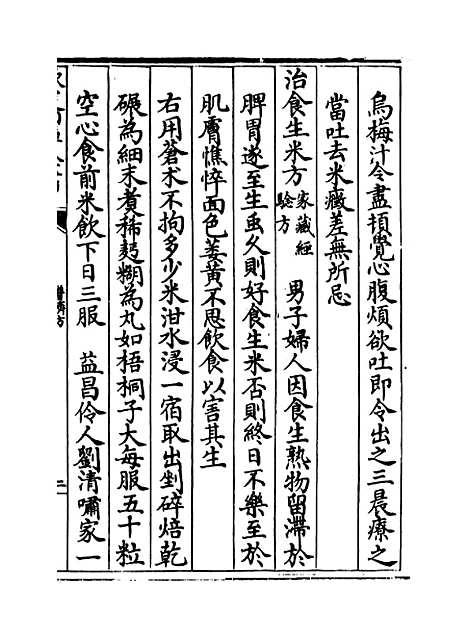 烏梅汁令盡頓覺心腹煩欲吐即令出之三晨療之
當吐去米癥差無所忌
治食生米方家藏經驗方　男子婦人因食生熟物留滯於
脾胃遂至生虫久則好食生米否則終日不樂至於
肌膚憔悴面色萎黃不思飲食以害其生
右用蒼术不拘多少米泔水浸一宿取出剉碎焙乾
碾為細末煮稀麪糊為丸如梧桐子大每服五十粒
空心食前米飲下日三服　益昌伶人劉清嘯家一
普濟方